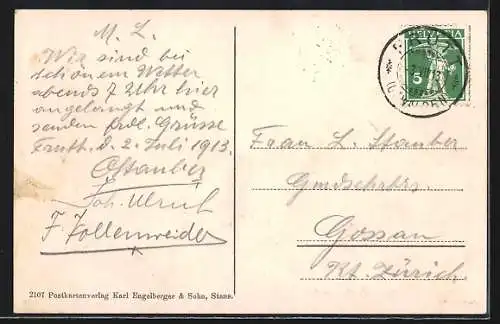 M. L.
Wir sind bei
schönem Wetter
abends 7 Uhr hier
angelangt und
senden frdl. Grüsse
Frutt d. 2. Juli 1913.
Joh. Ulrich
F. Zollenweider
2107 Postkartenverlag Karl Engelberger & Sohn, Stans.
HELVETIA
5
Frau L. Stauber
Gossau
Kt. Zürich.